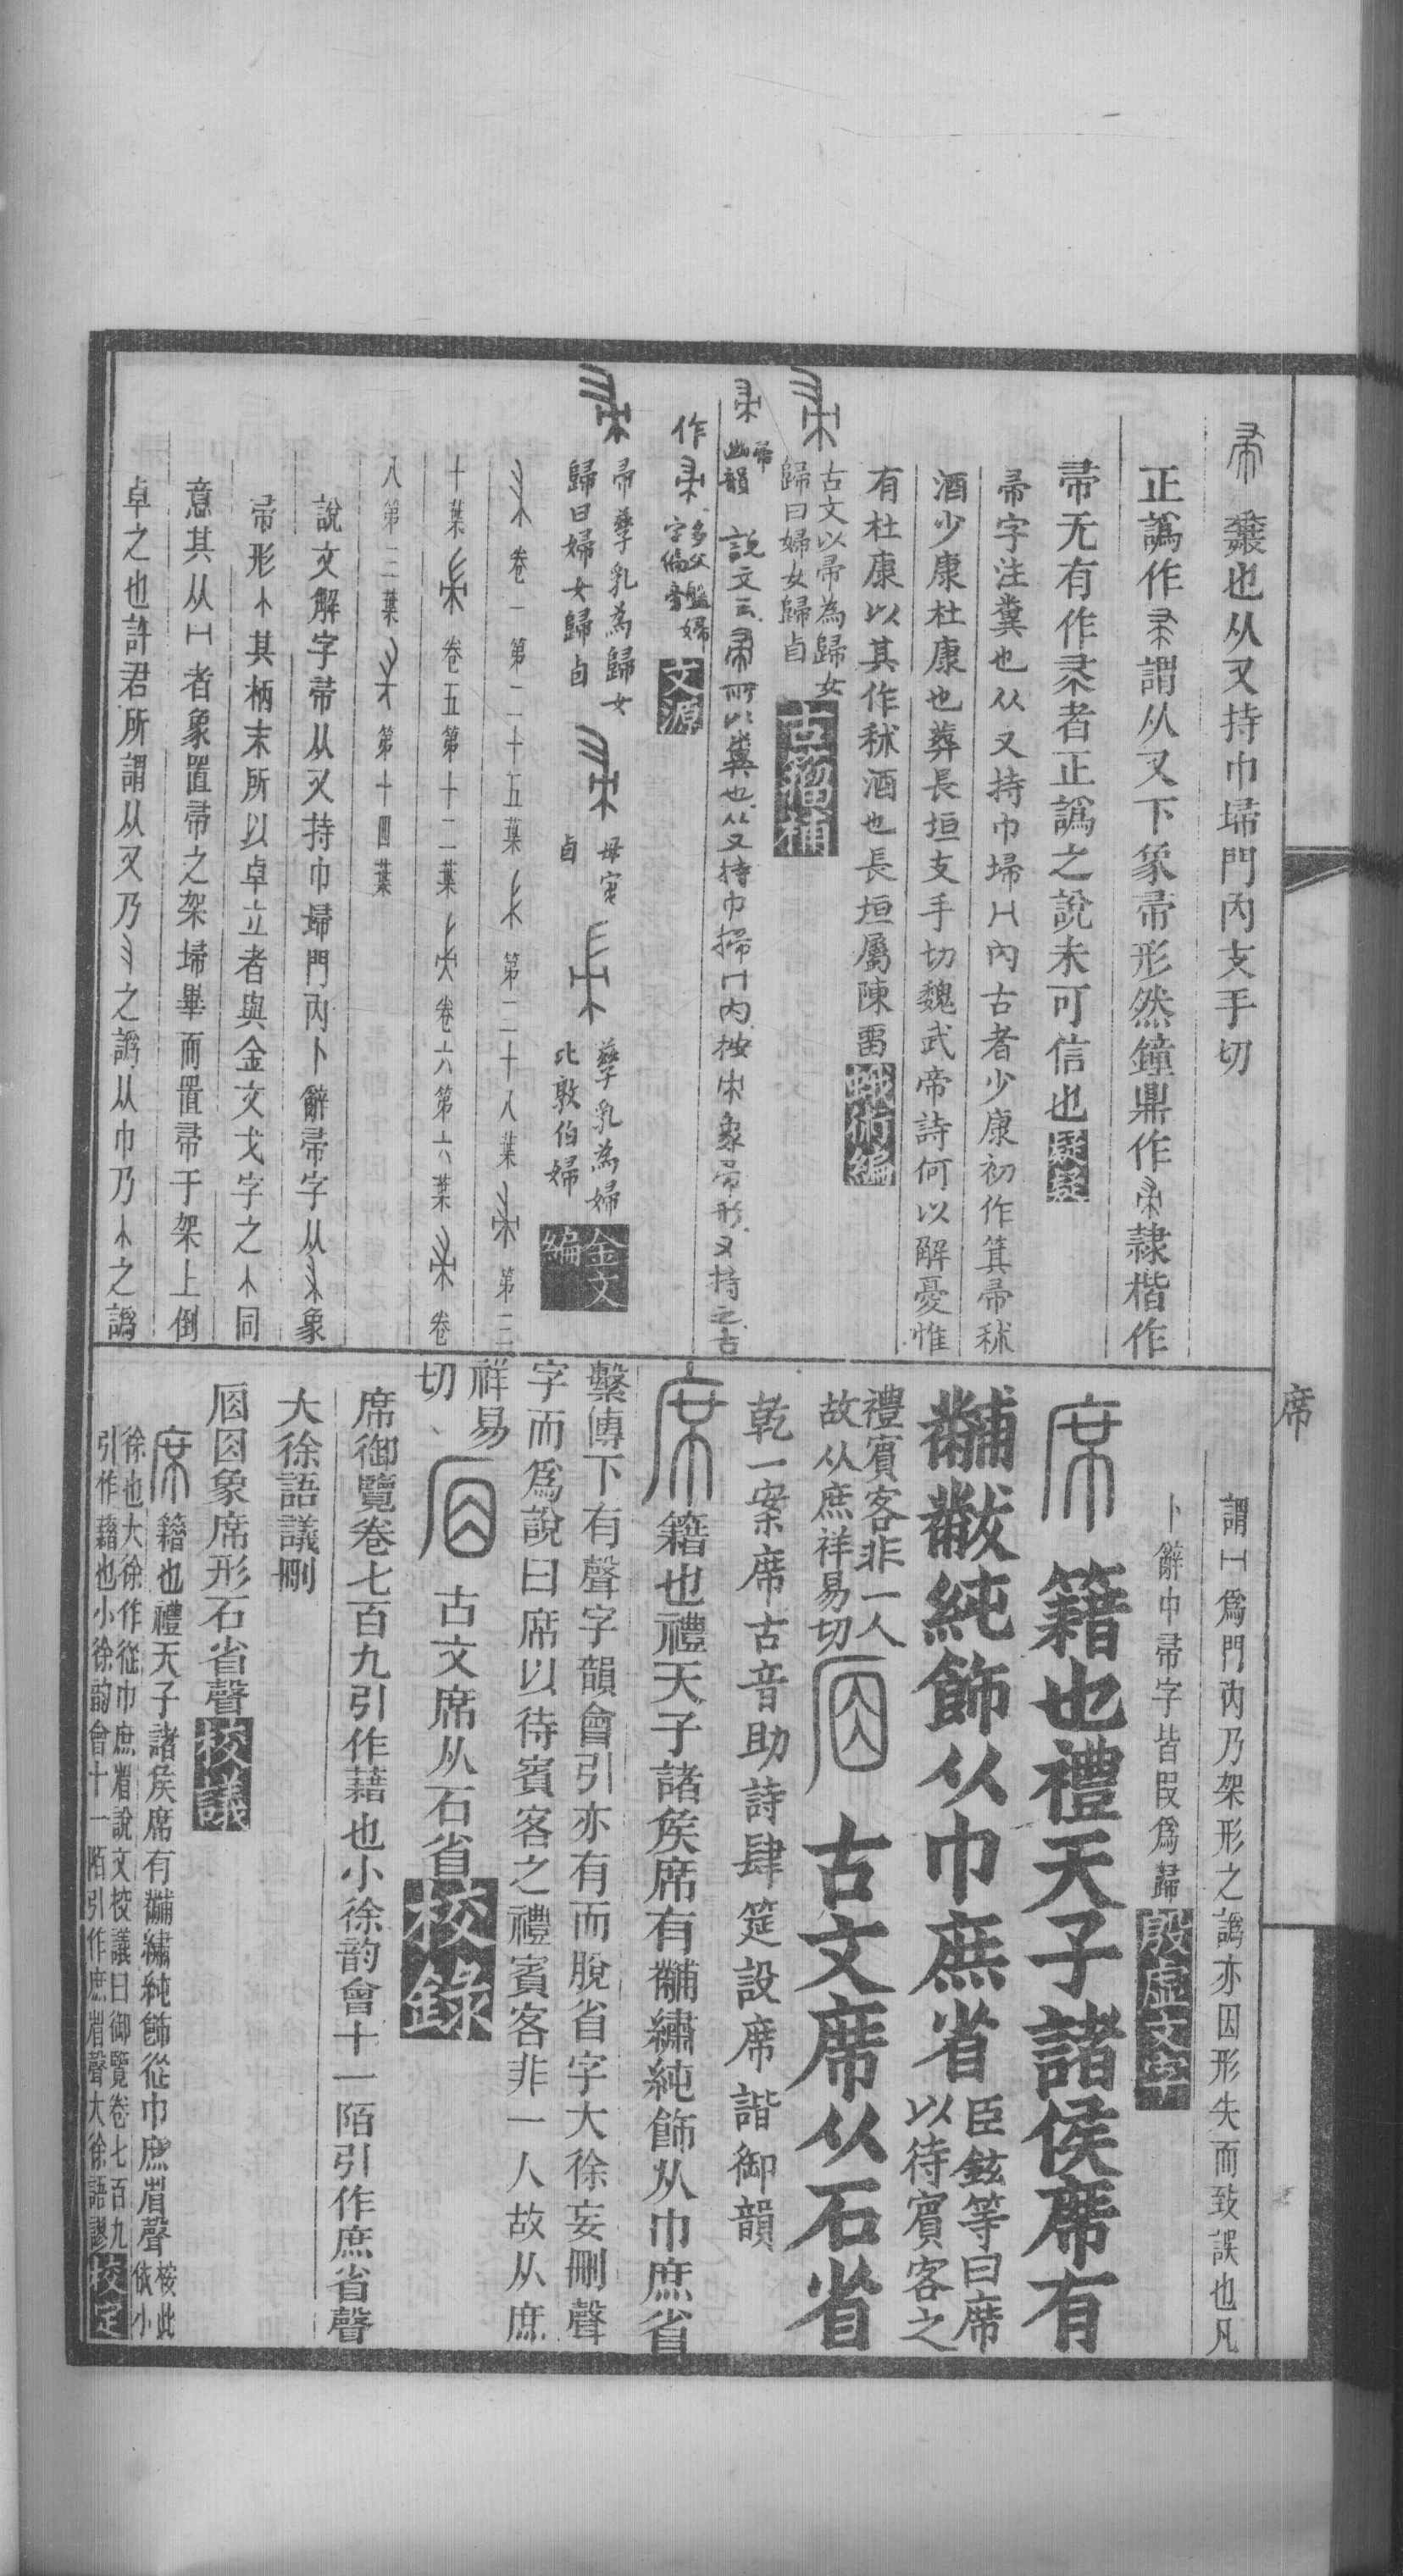 帚 糞也从又持巾埽門內支手切
正譌作帚謂从又下象帚形然鐘鼎作帚隷楷作
帚无有作者正譌之說未可信也疑疑
帚字注糞也从又持巾埽冂內古者少康初作箕帚秫
酒少康杜康也葬長垣支手切魏武帝詩何以解憂惟
有杜康以其作秫酒也長垣屬陳畱蛾術編
古文以帚為歸女
歸曰婦女歸貞
古籀補
說文云帚所以糞也从又持巾掃冂內按象帚形又持之古
作 多父盤婦
字偏旁
文源
帚孳乳為歸女
歸曰婦女歸貞
母寅
貞
孳乳為婦
比敦伯婦
金文
編
卷一第二十五葉 第二十八葉 第三
十葉 卷五第十二葉 卷六第六葉 卷
八第三葉 第十四葉
說文解字帚从又持巾埽門內卜辭帚字从象
帚形其柄末所以卓立者與金文戈字之同
意其从者象置帚之架埽畢而置帚于架上倒
卓之也許君所謂从又乃之譌从巾乃之譌
席
謂爲門內乃架形之譌亦因形失而致誤也凡
卜辭中帚字皆叚爲歸殷虛文字
席 籍也禮天子諸侯席有
黼黻純飾从巾庶省 臣鉉等曰席
以待賓客之
禮賓客非一人
故从庶祥易切
古文席从石省
乾一案席古音助詩肆筵設席諧御韻
席 籍也禮天子諸矦席有黼繡純飾从巾庶省
繫傳下有聲字韻會引亦有而脫省字大徐妄刪聲
字而爲說曰席以待賓客之禮賓客非一人故从庶
祥易
切
古文席从石省校錄
席御覽卷七百九引作藉也小徐韵會十一陌引作庶省聲
大徐語議刪
囙象席形石省聲校議
席 籍也禮天子諸矦席有黼繡純飾從巾庶省聲 桉此
依小
徐也大徐作從巾庶省說文校議曰御覽卷七百九
引作藉也小徐韵會十一陌引作庶省聲大徐語謬校定